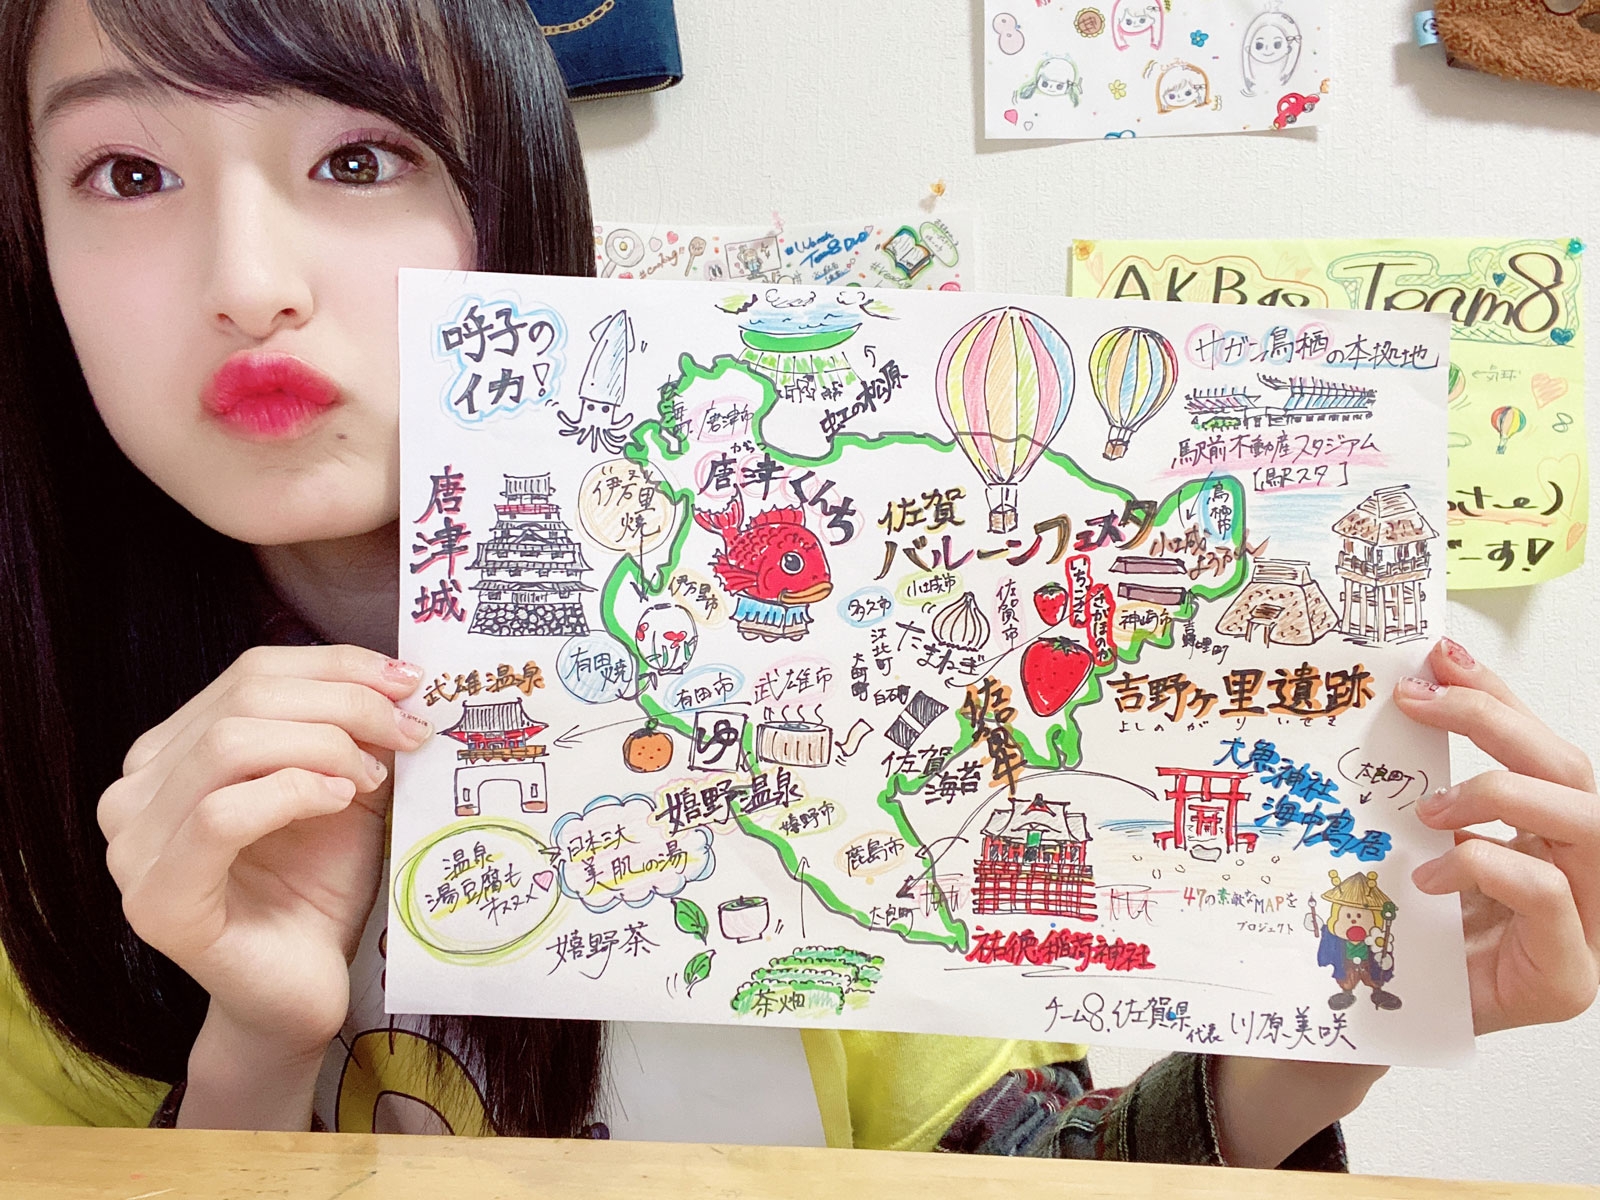 AKB48 Team8
呼子の
イカ!
虹の松原
サガン鳥栖の本拠地
駅前不動産スタジアム
[駅スタ]
唐津市
からつ
唐津くんち
唐津城
伊万里焼
伊万里市
佐賀
バルーンフェスタ
鳥栖市
小城ようかん
いちごさん
さがほのか
神埼市
吉野ヶ里町
吉野ヶ里遺跡
よしのがりいせき
多久市
小城市
佐賀市
たまねぎ
江北町
大町町
白石町
有田焼
有田市
武雄市
武雄温泉
ゆ
佐賀
海苔
佐賀県
大魚神社
海中鳥居
(太良町)
嬉野温泉
嬉野市
日本三大
美肌の湯
温泉
湯豆腐も
オススメ
嬉野茶
茶畑
鹿島市
太良町
祐徳稲荷神社
47の素敵なMAPを
プロジェクト
チーム8.佐賀県代表 川原美咲